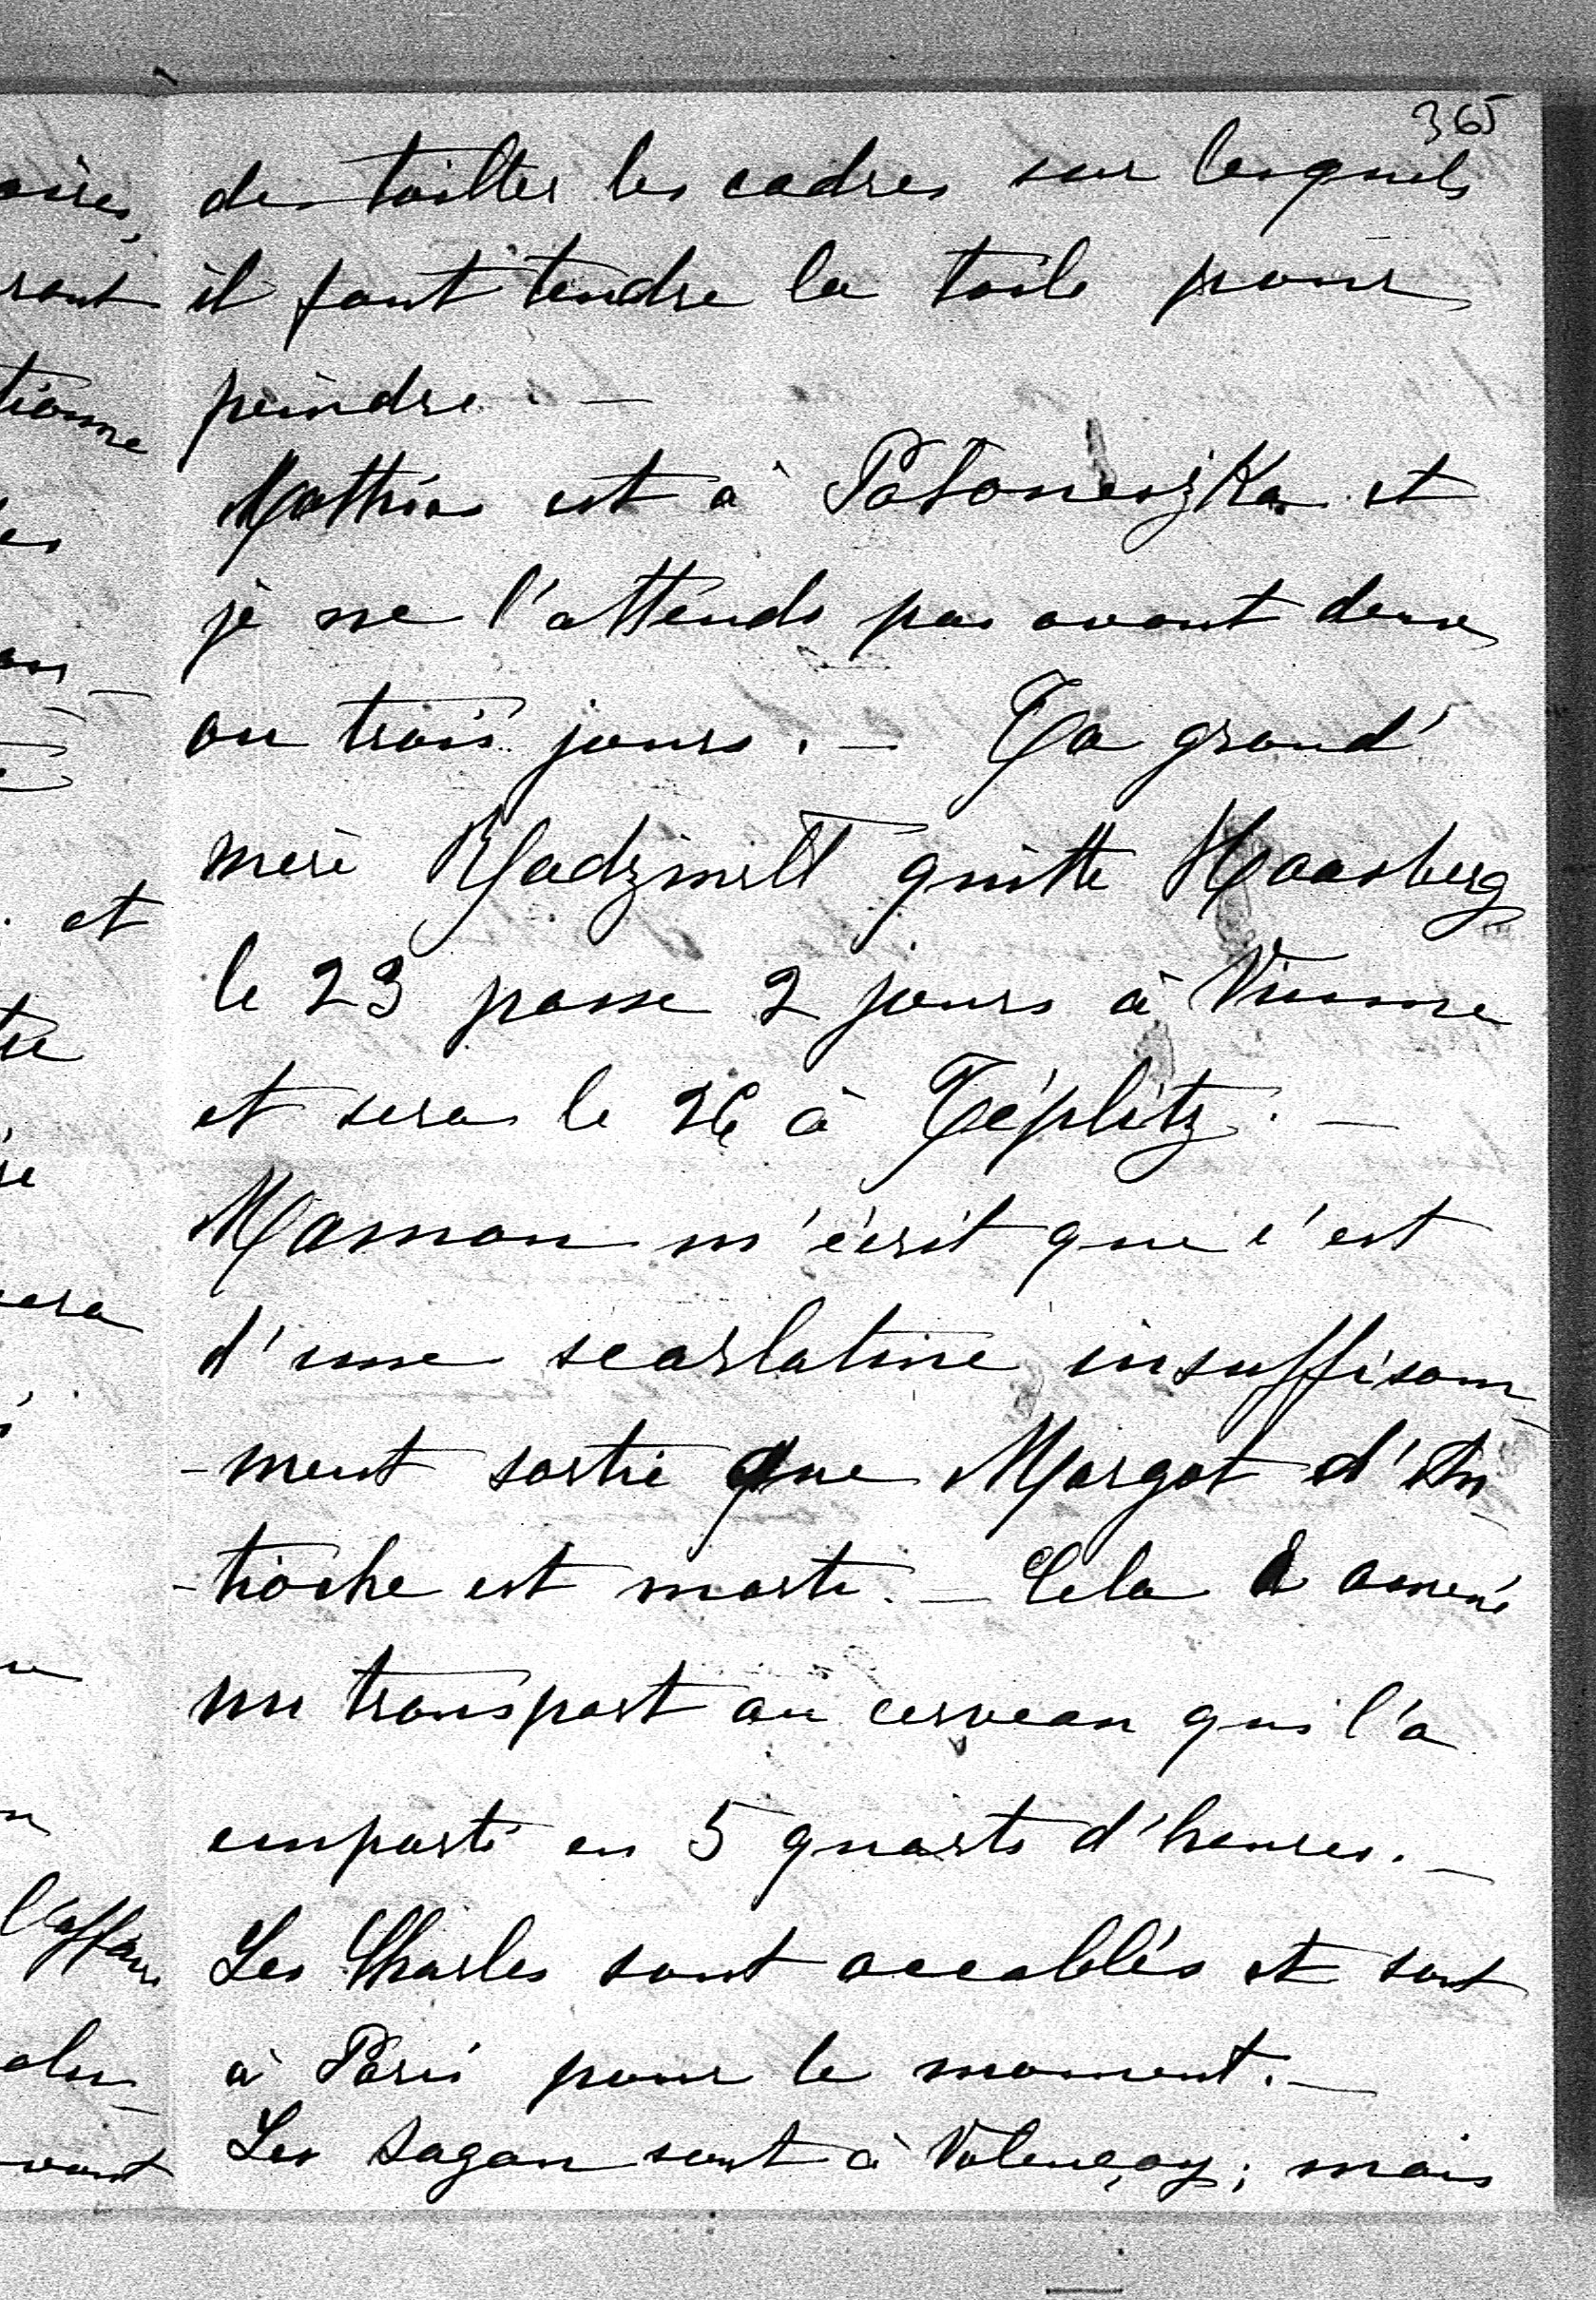 365
de tailler les cadres sur lesquels
il faut tendre la toile pour
peindre. —
Mathias est à Patoneszka et
je ne l'attends pas avant deux
ou trois jours. — Ta grand'
mère Radziwill quitte Haasberg
le 23 passe 2 jours à Vienne
et sera le 26 à Téplitz. —
Maman m'écrit que c'est
d'une scarlatine insuffisam-
-ment sortie que Margot d'An-
-tioche est morte. — Cela a amené
un transport au cerveau qui l'a
emporté en 5 quarts d'heures. —
Les Charles sont accablés et sont
à Paris pour le moment. —
Les Sagan sont à Valençay; mais